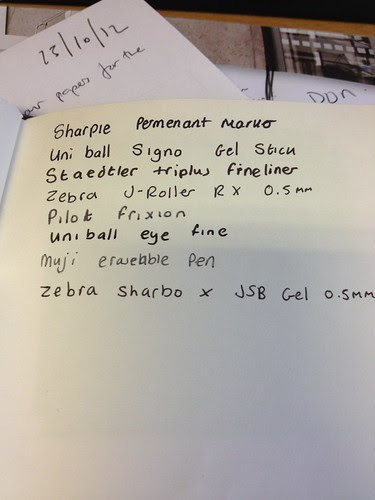 23/10/12
paper for the
DON
Sharpie Permenant Marker
Uni ball Signo Gel Stick
Staedtler triplus fineliner
Zebra J-Roller RX 0.5mm
Pilot Frixion
Uniball eye fine
Muji eraseable Pen
Zebra Sharbo x JSB Gel 0.5mm